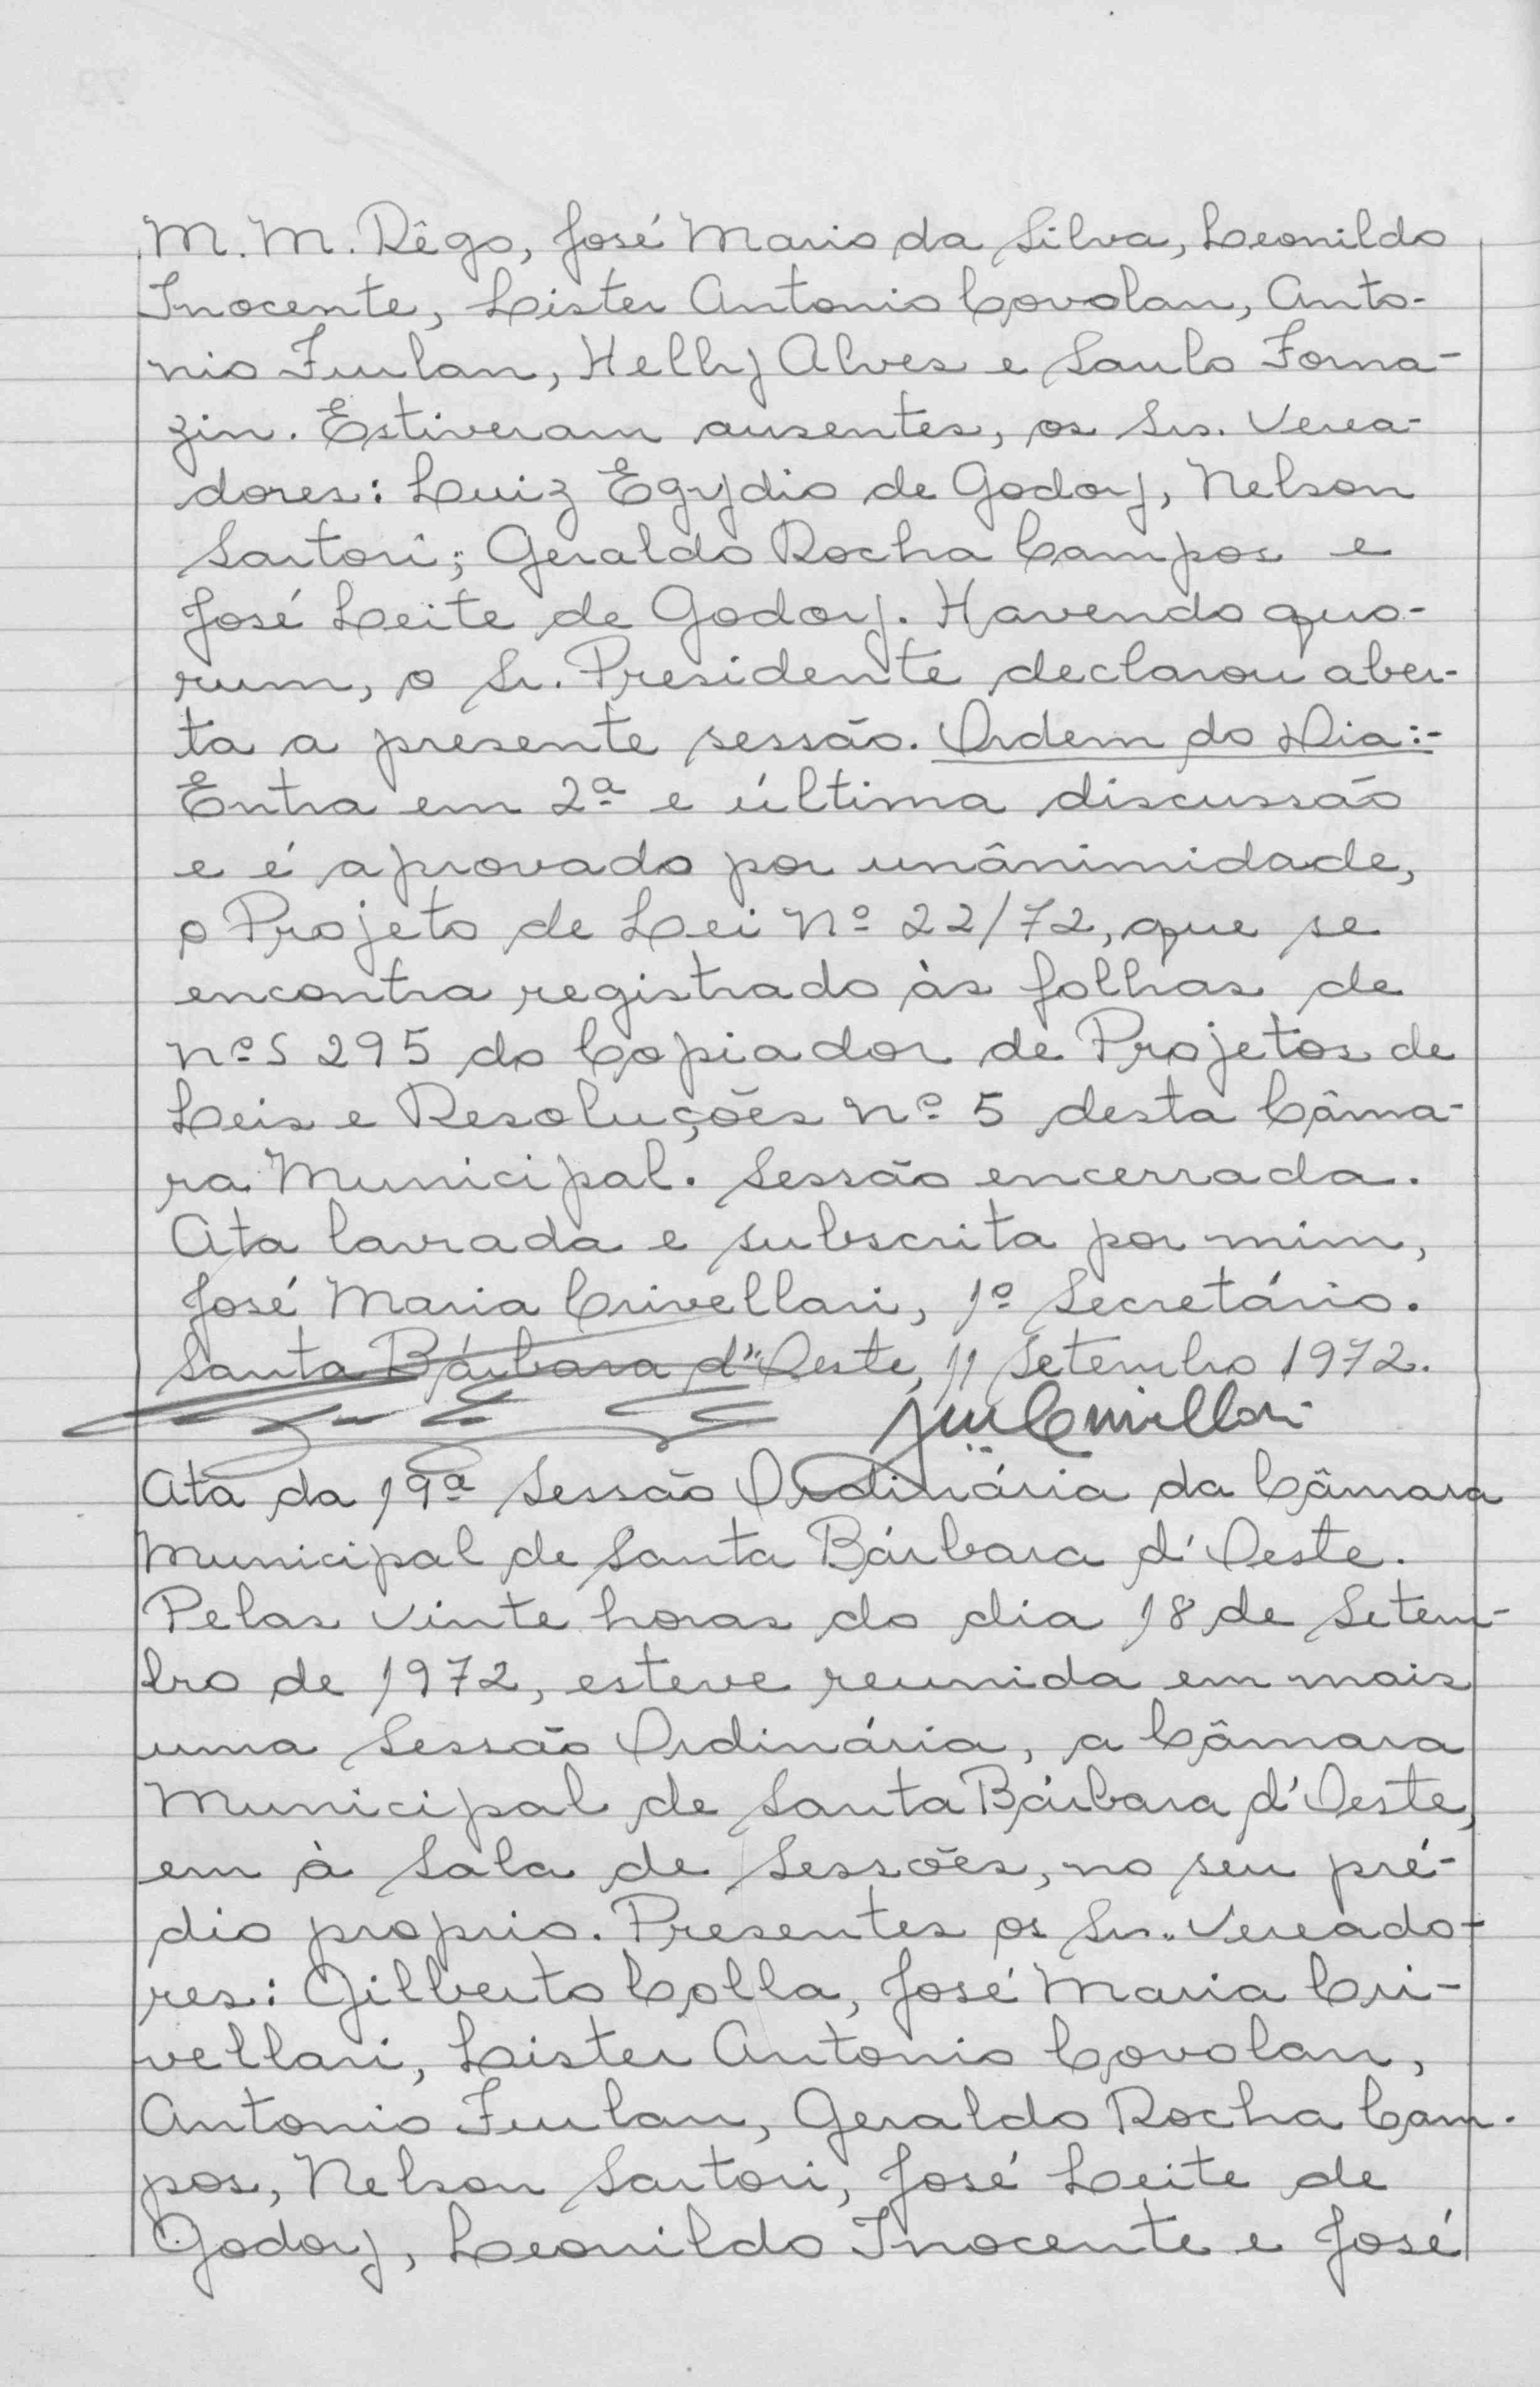 M. M. Rêgo, José Maria da Silva, Leonildo
Inocente, Lister Antonio Covolan, Anto-
nio Furlan, Helhy Alves e Saulo Forna-
zin. Estiveram ausentes, os Srs. Verea-
dores: Luiz Egydio de Godoy, Nelson
Sartori; Geraldo Rocha Campos e
José Leite de Godoy. Havendo quo-
rum, o Sr. Presidente declarou aber-
ta a presente sessão. Ordem do Dia:-
Entra em 2ª e última discussão
e é aprovado por unânimidade,
o Projeto de Lei Nº 22/72, que se
encontra registrado às folhas de
nºs 295 do Copiador de Projetos de
Leis e Resoluções nº 5 desta Câma-
ra Municipal. Sessão encerrada.
Ata lavrada e subscrita por mim,
José Maria Crivellari, 1º Secretário.
Santa Bárbara d'Oeste, 11 Setembro 1972.
Ata da 19ª Sessão Ordinária da Câmara
Municipal de Santa Bárbara d'Oeste.
Pelas vinte horas do dia 18 de Setem-
bro de 1972, esteve reunida em mais
uma Sessão Ordinária, a Câmara
Municipal de Santa Bárbara d'Oeste,
em à Sala de Sessões, no seu pré-
dio proprio. Presentes os Srs. Vereado-
res: Gilberto Colla, José Maria Cri-
vellari, Lister Antonio Covolan,
Antonio Furlan, Geraldo Rocha Cam-
pos, Nelson Sartori, José Leite de
Godoy, Leonildo Inocente e José